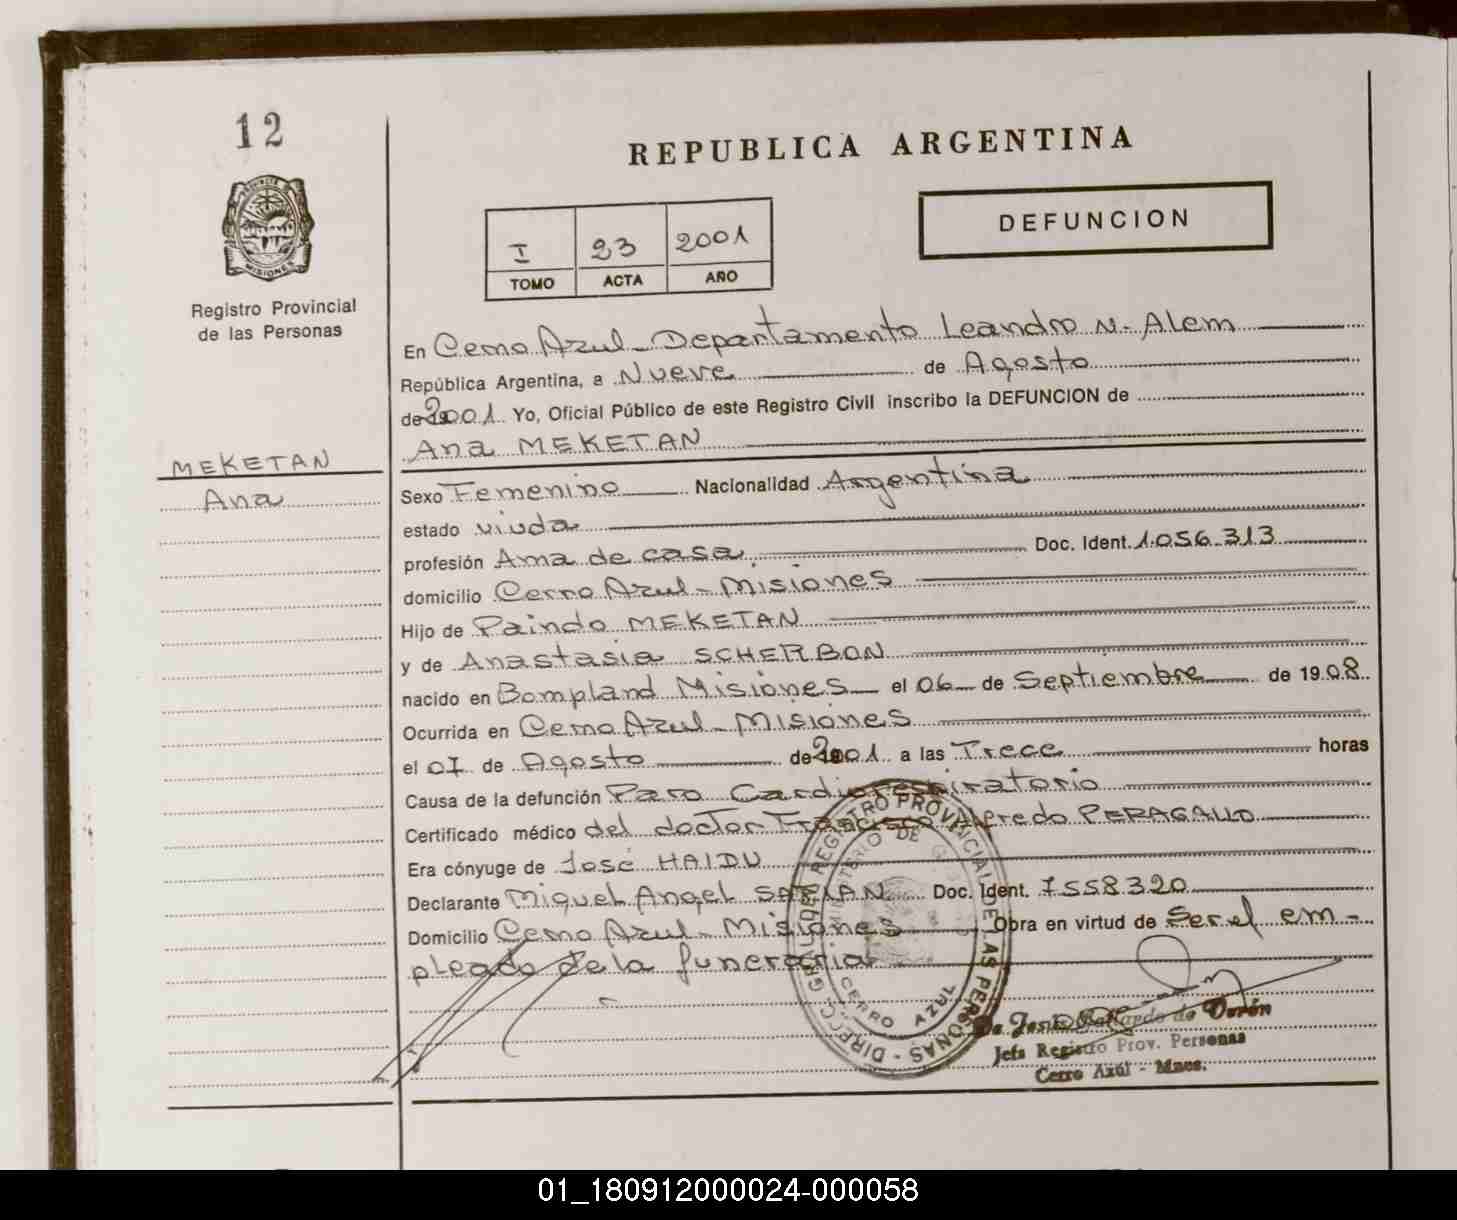 12
REPUBLICA ARGENTINA
DEFUNCION
I 23 2001
TOMO ACTA AÑO
PROVINCIA DE
MISIONES
Registro Provincial
de las Personas
En Cerro Azul - Departamento Leandro N. Alem
República Argentina, a Nueve de Agosto
de 2001 Yo, Oficial Público de este Registro Civil inscribo la DEFUNCION de
Ana MEKETAN
MEKETAN
Ana
Sexo Femenino Nacionalidad Argentina
estado viuda
profesión Ama de casa Doc. Ident. 1.056.313
domicilio Cerro Azul - Misiones
Hijo de Paindo MEKETAN
y de Anastasia SCHERBON
nacido en Bompland Misiones el 06 de Septiembre de 1908
Ocurrida en Cerro Azul - Misiones
el 07 de Agosto de 2001 a las Trece horas
Causa de la defunción Paro Cardiorespiratorio
Certificado médico del doctor Francisco Alfredo PERAGALLO
Era cónyuge de José HAIDU
Declarante Miguel Angel Doc. Ident. 7558320
Domicilio Cerro Azul - Misiones Obra en virtud de Ser el em-
pleado de la funeraria
DIRECC. GRAL. DEL REGISTRO PROVINCIAL DE LAS PERSONAS
MINISTERIO DE
CERRO AZUL
de Durán
Jefa Registro Prov. Personas
Cerro Azúl - Mnes.
01_180912000024-000058